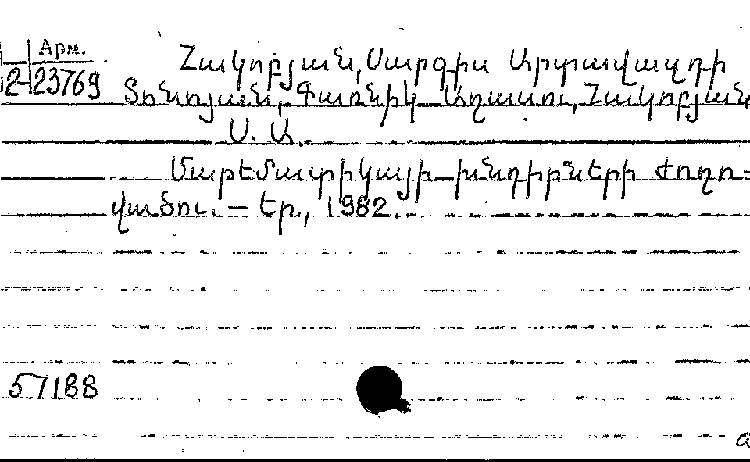 Арм.
2-23769
Հակոբյան, Սարգիս Արտավազդի
Տոնոյան, Փառնիկ Աղասու, Հակոբյան
Ս. Ա.
Մաթեմատիկայի խնդիրների ժողո-
վածու. — Եր., 1982.
57188